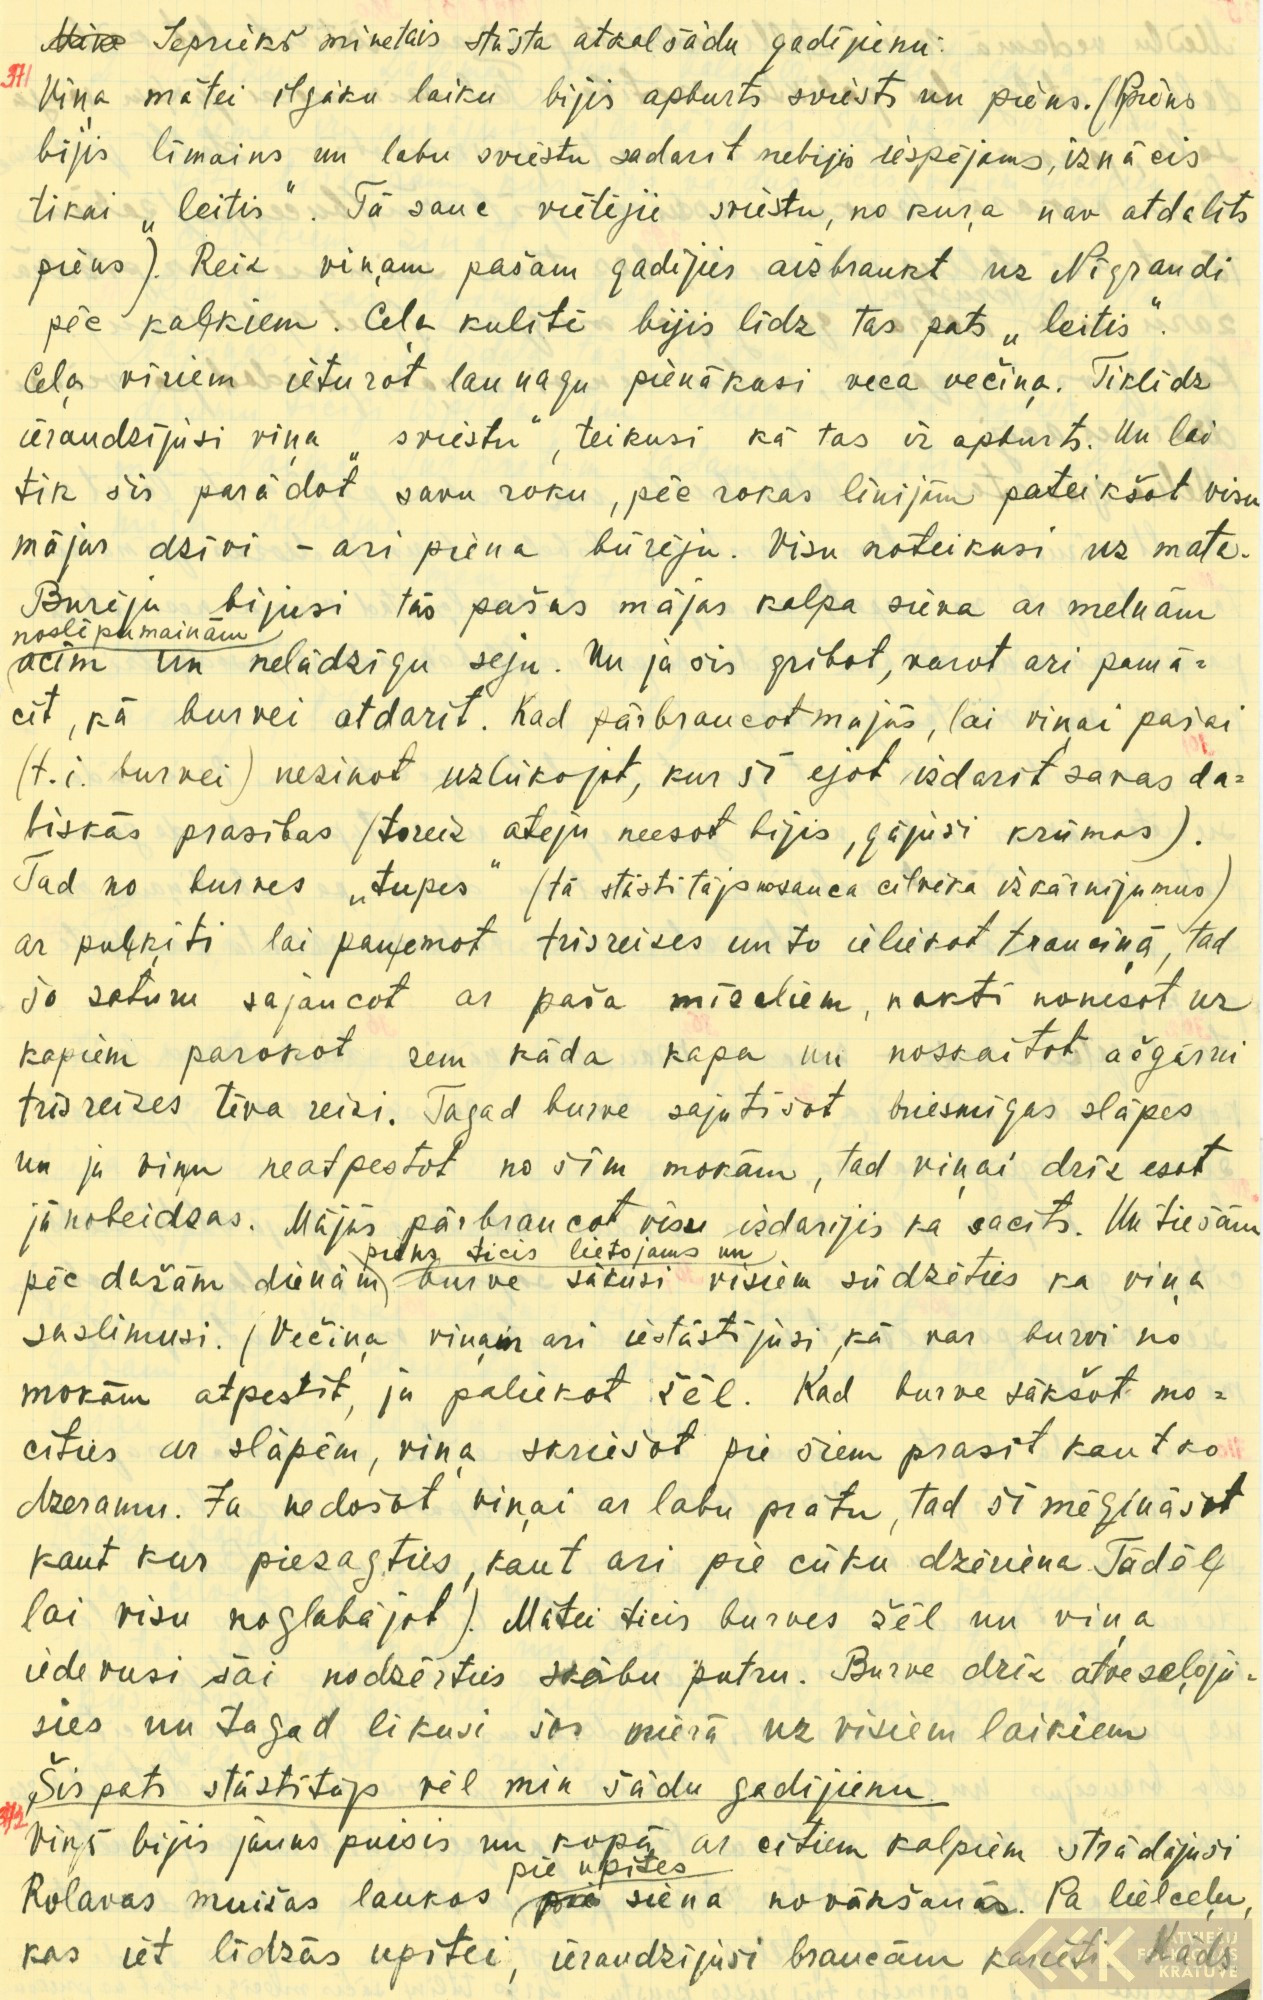 Iepriekš minetais stāsta atkal šādu gadijienu:
371 Viņa mātei ilgāku laiku bijis apburts sviests un piens. (Piens
bijis līmains un labu sviestu sadarit nebijis iespējams, iznācis
tikai „leitis“. Tā sauc vietējie sviestu, no kuŗa nav atdalits
piens). Reiz viņam pašam gadijies aizbraukt uz Nīgrandi
pēc kaļķiem. Ceļa kulītē bijis lidz tas pats „leitis“.
Ceļa viriem ieturot launagu pienākusi veca večiņa. Tiklidz
ieraudzījusi viņa „sviestu“, teikusi kā tas ir apburts. Un lai
tik šis parādot savu roku, pēc rokas līnijām pateikšot visu
mājas dzīvi – ari piena būrēju. Visu noteikusi uz mata.
Burēja bijusi tās pašas mājas kalpa sieva ar melnām
noslēpumainām
acīm un nelādzīgu seju. Un ja sis gribot, varot ari pamā=
cit, kā burvei atdarit. Kad pārbraucot majās, lai viņai pašai
(t.i. burvei) nezinot uzlūkojot, kur šī ejot izdarit savas da=
biskās prasības (toreiz ateju neesot bijis, gājusi krūmos).
Tad no burves „tupes“ (tā stāstitājs nosauca cilvēka izkārnijumus)
ar puļķīti lai paņemot trīsreizes un to ieliekot trauciņā, tad
šo saturu sajaucot ar paša mīzaliem, nakti nonesot uz
kapiem parokot zem kāda kapa un noskaitot ačgārni
trīs reizes tēva reizi. Tagad burve sajutīšot briesmigas slāpes
un ja viņu neatpestot no šīm mokām, tad viņai drīz esot
jānobeidzas. Mājās pārbraucot visu izdarijis ka sacīts. Un tiešām
piens ticis lietojams un
pēc dažām dienām burve sākusi visiem sūdzēties ka viņa
saslimusi. (Večiņa viņam ari iestāstījusi, kā var burvi no
mokām atpestīt, ja paliekot žēl. Kad burve sākšot mo=
cīties ar slāpēm, viņa skriešot pie šiem prasīt kaut ko
dzeramu. Ja nedošot viņai ar labu prātu, tad šī mēģināšot
kaut kur piezagties, kaut ari pie cūku dzēriena. Tādēļ
lai visu noglabājot). Mātei ticis burves žēl un viņa
iedevusi šai nodzērties skābu putru. Burve drīz atveseļoju=
sies un tagad likusi šos mierā uz visiem laikiem
Šis pats stāstītājs vēl min šādu gadijienu
372 Viņš bijis jauns puisis un kopā ar citiem kalpiem strādājusi
pie upītes
Rolavas muižas laukos siena novākšanās. Pa lielceļu,
kas iet līdzās upitei, ieraudzījusi braucam karieti. Kāds
LATVIEŠU
FOLKLORAS
KRĀTUVE